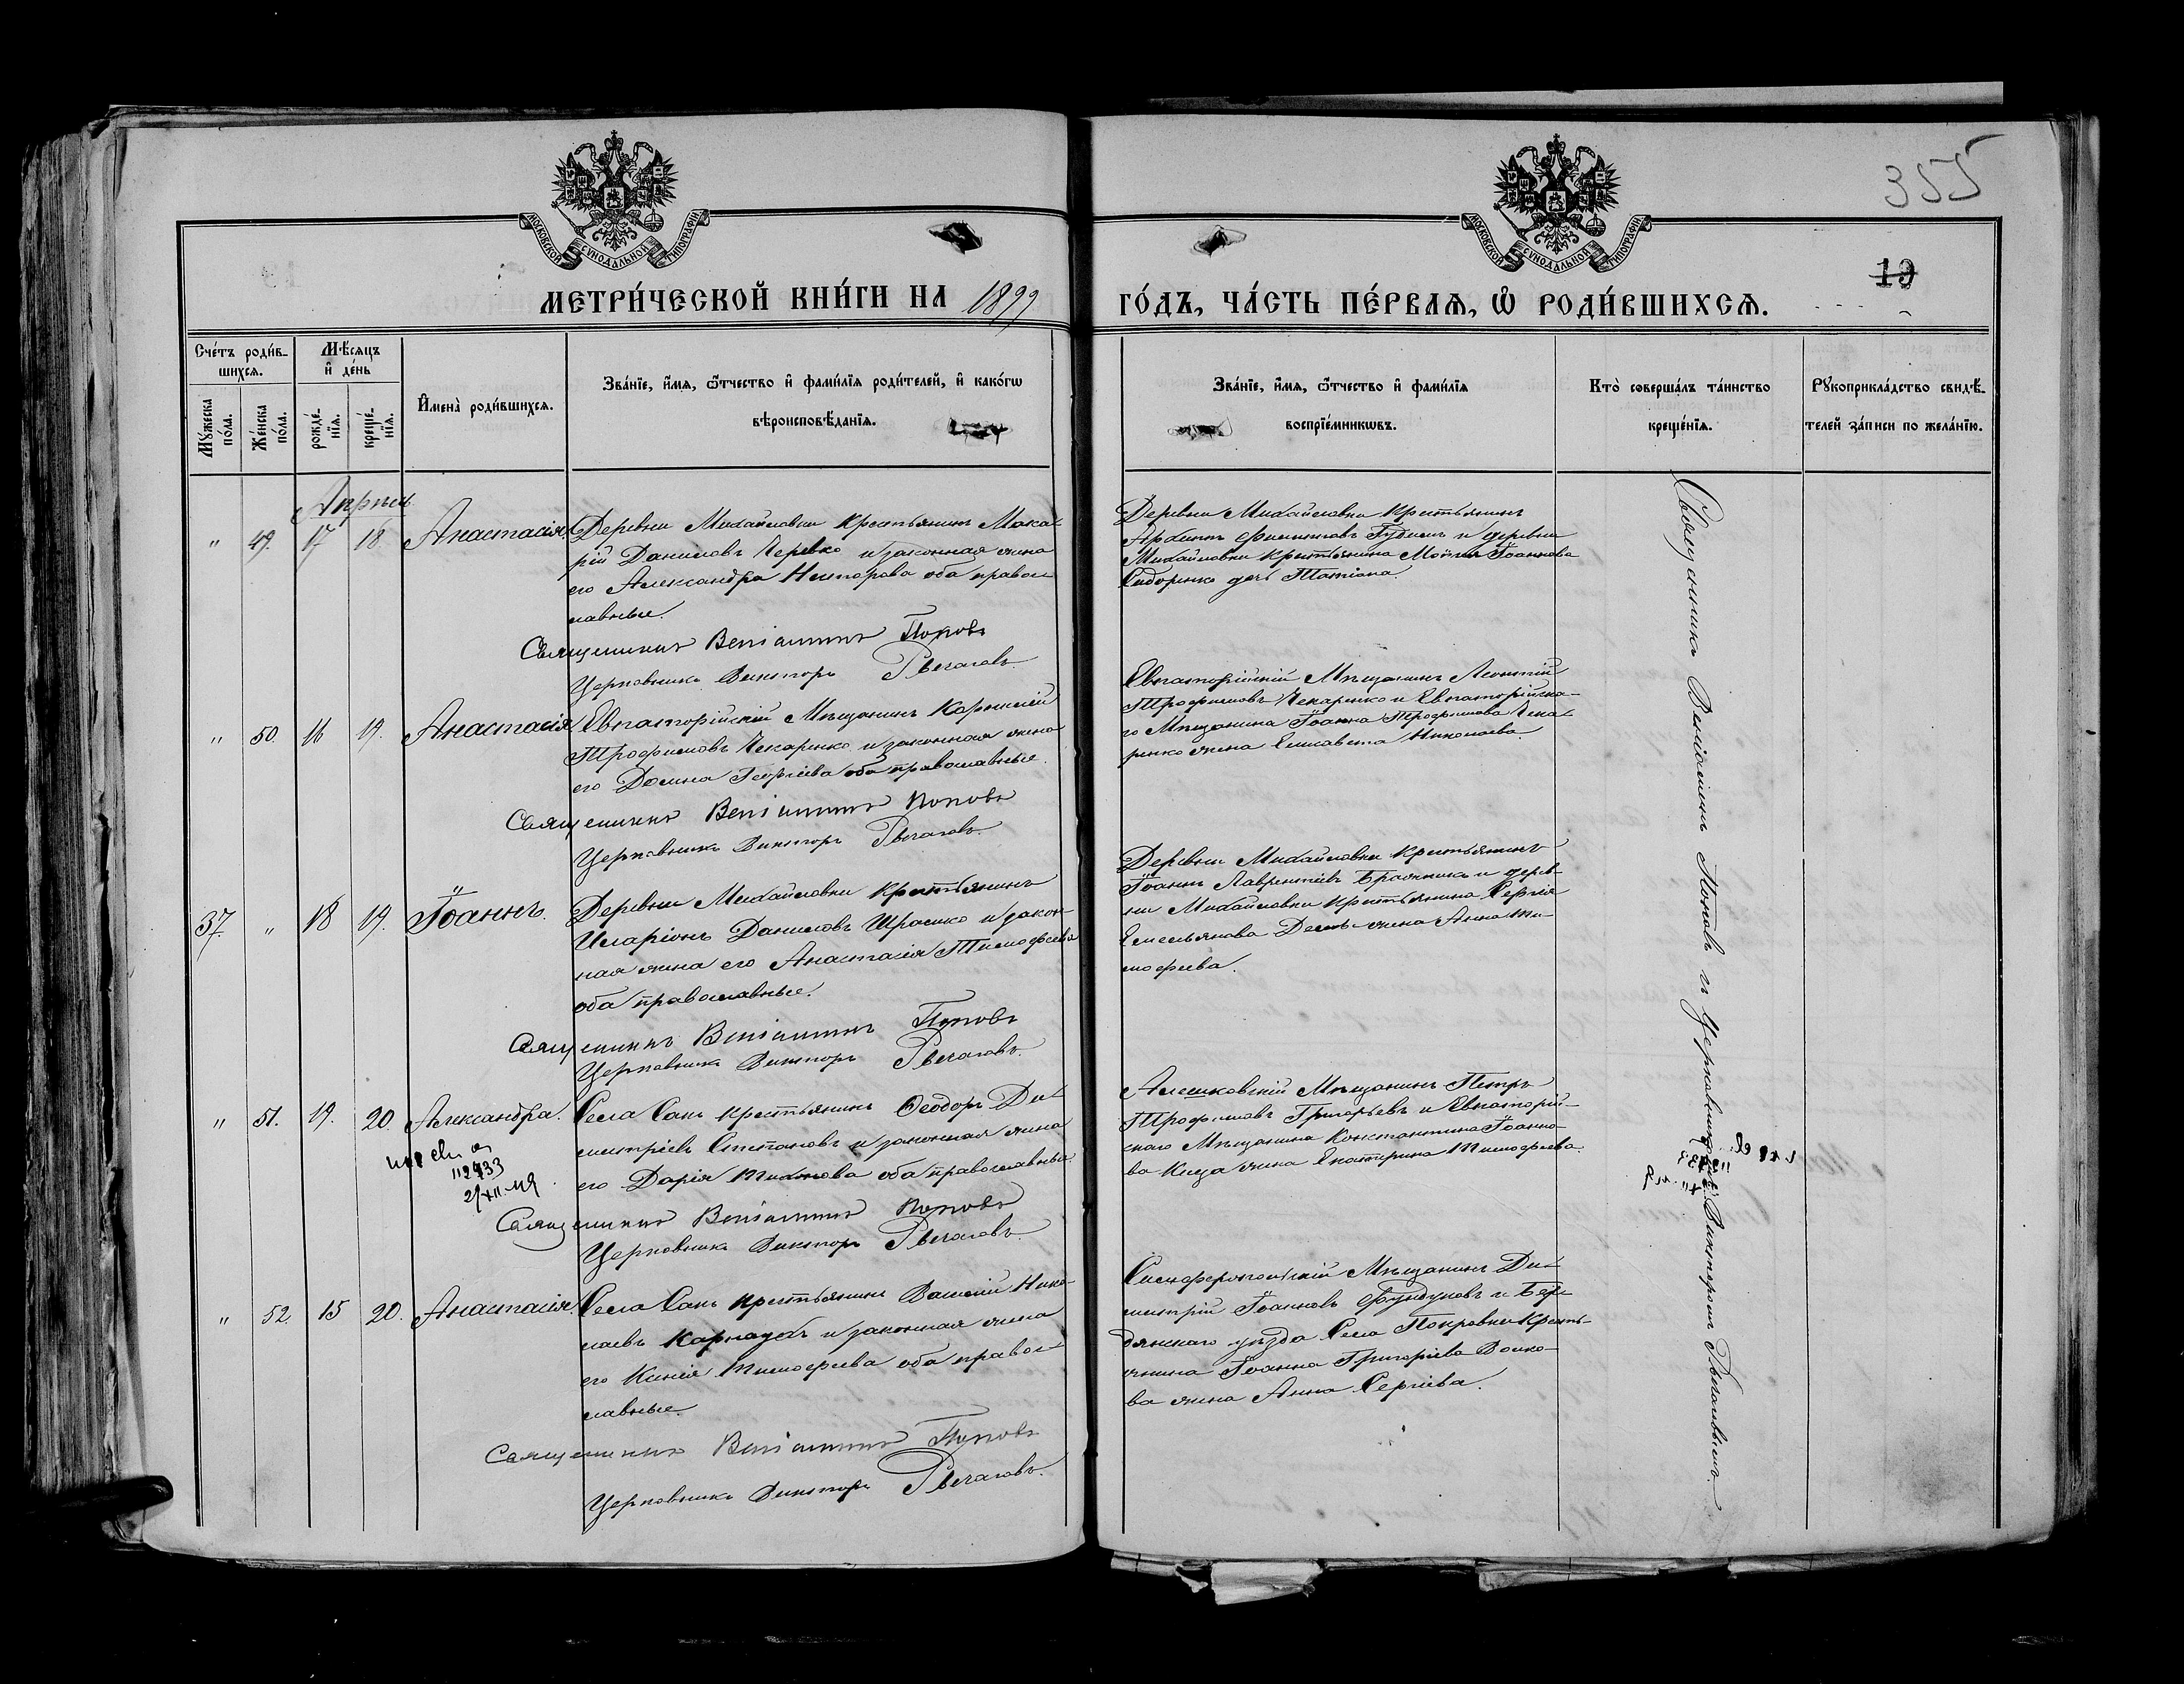 355
19
МОСКОВСКОЙ СѴНОДАЛЬНОЙ ТИПОГРАФИИ
МОСКОВСКОЙ СѴНОДАЛЬНОЙ ТИПОГРАФИИ
МЕТРИ́ЧЕСКОЙ КНИ́ГИ НА 1899
ГО́ДЪ, ЧА́СТЬ ПЕ́РВАѦ, Ѡ҆ РОДИ́ВШИХСѦ.
Сче́тъ роди́в-
шихсѧ.
Мꙋ́жеска по́ла.
Же́нска по́ла.
Мѣ́сѧцъ
и҆ де́нь
рожде́-
нїѧ.
креще́-
нїѧ.
И҆мена̀ роди́вшихсѧ.
Зва́нїе, и҆́мѧ, ѻ҆́тчество и҆ фами́лїѧ роди́телей, и҆ како́гѡ
вѣроисповѣ́данїѧ.
Зва́нїе, и҆́мѧ, ѻ҆́тчество и҆ фами́лїѧ
воспрїе́мникѡвъ.
Кто̀ соверша́лъ та́инство
креще́нїѧ.
Рꙋкоприкла́дство свидѣ́-
телей за́писи по жела́нїю.
Апрель
" 49. 17 18. Анастасія. Деревни Михайловки крестьянинъ Мака-
рій Даниловъ Черевко и законная жена
его Александра Несторова оба правос-
лавные.
Священникъ Веніаминъ Поповъ
Церковникъ Викторъ Рвачовъ.
Деревни Михайловки крестьянинъ
Архипъ Филиповъ и деревни
Михайловки крестьянина Іоаннова
Сидоренко дочь Татіана.
" 50. 16 19. Анастасія. Евпаторійскій Мѣщанинъ Корнилій
Трофимовъ Чекаренко и законная жена
его Домна Георгіева оба православные.
Священникъ Веніаминъ Поповъ
Церковникъ Викторъ Рвачовъ.
Евпаторійскій Мѣщанинъ Леонтій
Трофимовъ Чекаренко и Евпаторійска-
го Мѣщанина Іоанна Трофимова Чека-
ренко жена Елисавета Николаева.
37. " 18 19. Іоаннъ. Деревни Михайловки крестьянинъ
Иларіонъ Даниловъ и закон-
ная жена его Анастасія Тимофеева
оба православные.
Священникъ Веніаминъ Поповъ
Церковникъ Викторъ Рвачовъ.
Деревни Михайловки крестьянинъ
Іоаннъ Лаврентіевъ Бражникъ и дерев-
ни Михайловки крестьянина Сергія
Емельянова жена Анна Ти-
мофеева.
" 51. 19. 20. Александра. Села Сакъ крестьянинъ Ѳеодоръ Ди-
митріевъ Степановъ и законная жена
его Дарія Тихонова оба православные.
Священникъ Веніаминъ Поповъ
Церковникъ Викторъ Рвачовъ.
Алешковскій Мѣщанинъ Петръ
Трофимовъ Григорьевъ и Евпаторій-
скаго Мѣщанина Константина Іоанно-
ва жена Екатерина Тимофеева.
" 52. 15 20. Анастасія. Села Сакъ крестьянинъ Василій Нико-
лаевъ Карнаухъ и законная жена
его Ксенія Тимофеева оба правос-
лавные.
Священникъ Веніаминъ Поповъ
Церковникъ Викторъ Рвачовъ.
Симферопольскій Мѣщанинъ Ди-
митрій Іоанновъ Фундуковъ и Бер-
дянскаго уѣзда Села Покровки Кресть-
янина Іоанна Григоріева Волко-
ва жена Анна Сергіева.
Священникъ Веніаминъ Поповъ съ Церковникомъ Викторомъ Рвачовымъ.